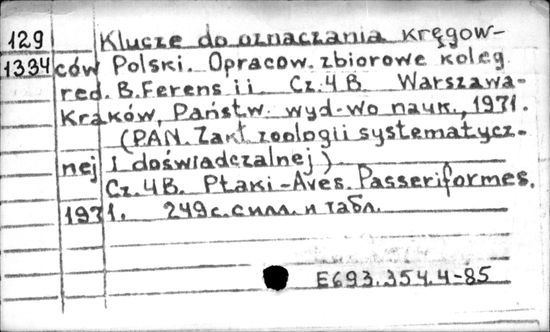 129 Klucze do oznaczania kręgow-
1334 ców Polski. Opracow. zbiorowe koleg.
red. B. Ferens i i. Cz. 4 B. Warszawa-
Kraków, Państw. wyd-wo nauk., 1971.
(PAN. Zakł. zoologii systematycz-
nej i doświadczalnej)
Cz. 4B. Ptaki-Aves. Passeriformes.
1971. 249 с. с илл. и табл.
E693.354.4-85